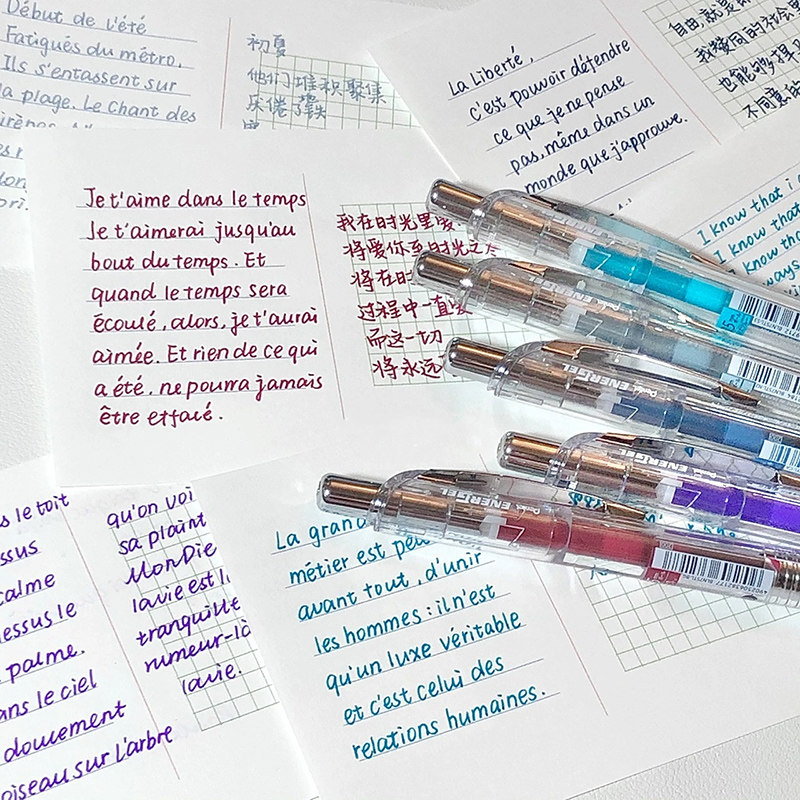 Début de l'été
Fatigués du métro,
Ils s'entassent sur
la plage. Le Chant des
初夏
他们堆积聚集
厌倦了
La Liberté,
c'est pouvoir défendre
ce que je ne pense
pas, même dans un
monde que j'approuve.
自由就是
我赞同的社会里
也能够捍卫
不同意的
I know that i
I know that
I know tha
Je t'aime dans le temps
Je t'aimerai jusqu'au
bout du temps. Et
quand le temps sera
écoulé, alors, je t'aurai
aimée. Et rien de ce qui
a été, ne pourra jamais
être effacé.
我在时光里爱
将爱你至时光之
将在时
过程中一直
而这一切
将永远
le toit
calme
le
palme.
dans le ciel
doucement
oiseau sur l'arbre
qu'on voi
sa plaint
Mon Die
la vie est l
tranquille
rumeur-là
la vie.
La grand
métier est peu
avant tout, d'unir
les hommes : il n'est
qu'un luxe véritable
et c'est celui des
relations humaines.
Pentel ENERGEL
Pentel ENERGEL
Pentel ENERGEL
7